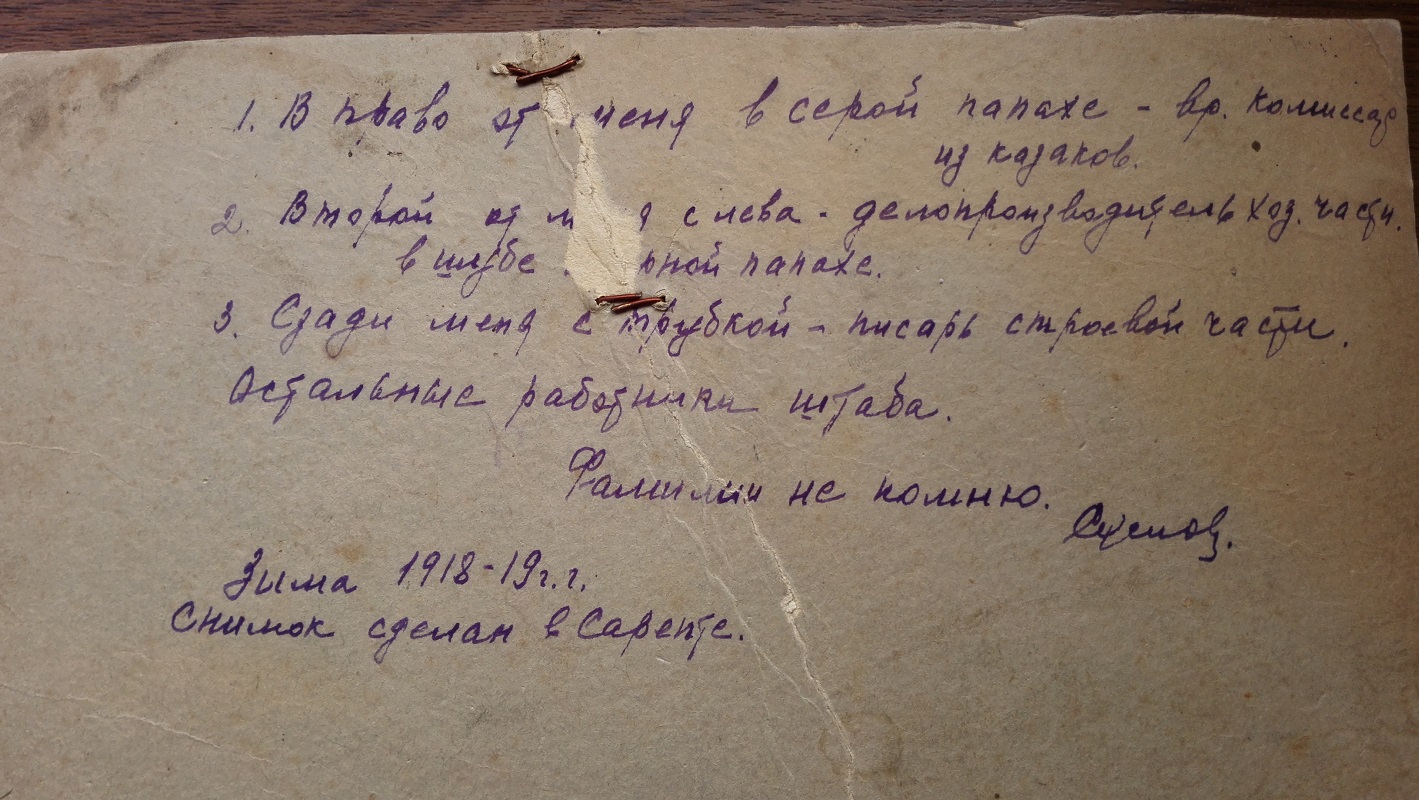 1. В право от меня в серой папахе - вр. комиссар
из казаков.
2. Второй от м я слева - делопроизводитель хоз. части.
в шубе рной папахе.
3. Сзади меня с трубкой - писарь строевой части.
Остальные работники штаба.
Фамилии не помню.
Зима 1918-19 г.г.
Снимок сделан в Сарепте.